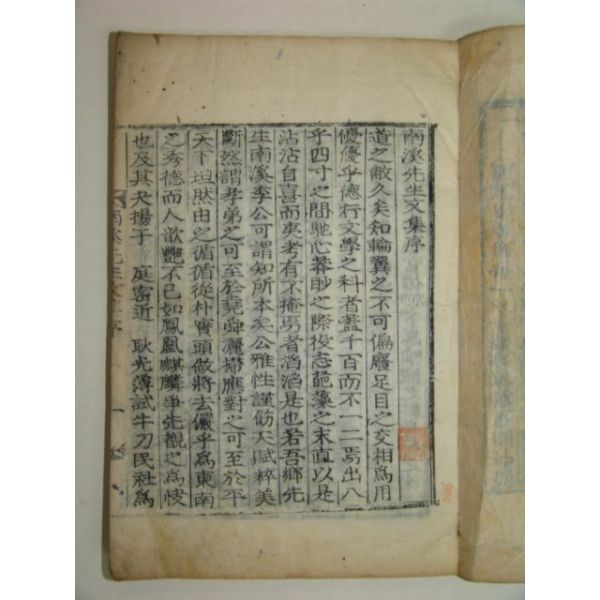 南溪先生文集序
道之蔽久矣知輪翼之不可偏廢足目之交相爲用
優優乎德行文學之科者蓋千百而不一二焉出入
乎四寸之間馳心莽眇之際役志葩藻之末直以是
沾沾自喜而夷考有不掩焉者滔滔是也若吾鄕先
生南溪李公可謂知所本矣公雅性謹篤天賦粹美
斷然謂孝弟之可至於堯舜灑掃應對之可至於平
天下坦然由之循循從朴實頭做將去儼乎爲東南
之秀德而人歆艶不已如鳳凰麒麟爭先覩之爲快
也及其大揚于 庭密近 耿光薄試牛刀民社爲
南溪先生文集序 一